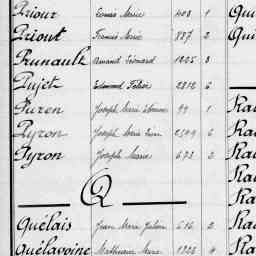 Priour Louis Marie 408 1
Priout Francois Marie 887 2
Prunault Armand Léonard 1205 3
Pujet Edmond Félix 2812 6
Puren Joseph Marie 99 1
Pyron Joseph Marie 6
Pyron Joseph Marie 673 2
Q
Quélais Jean Marie Julien 616 2
Quélavoine Mathurin Marie 1326 4
Qui
Qui
Ra
Ra
Ra
Ra
Ra
Ra